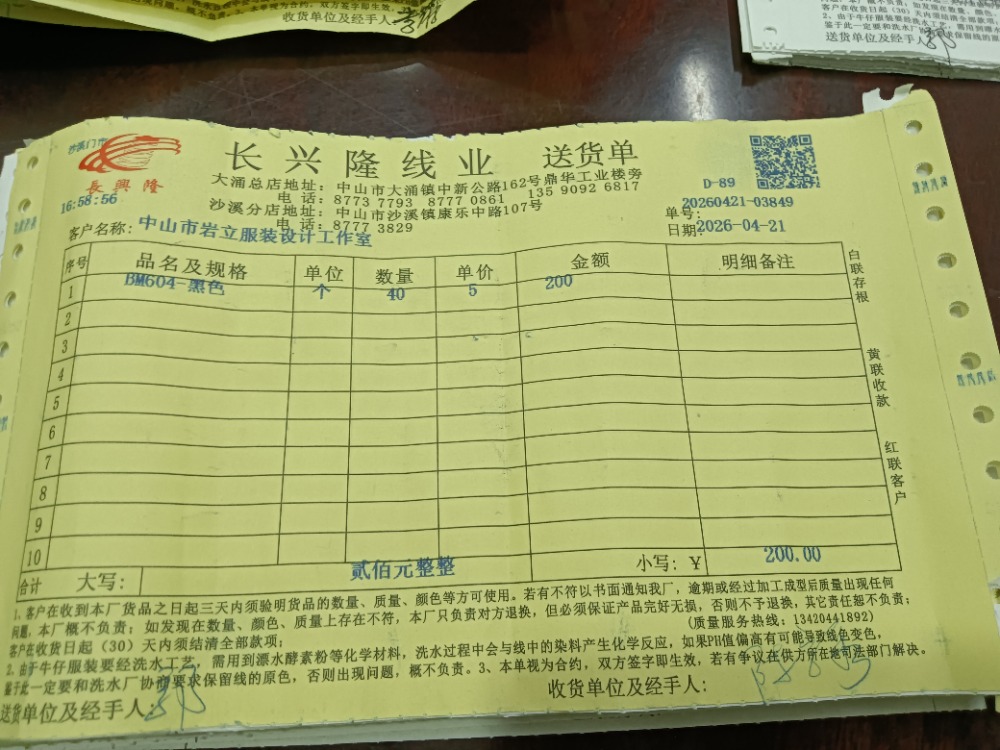 收货单位及经手人
送货单位及经手人
沙溪门市
長興隆
16:58:56
长兴隆线业 送货单
大涌总店地址：中山市大涌镇中新公路162号鼎华工业楼旁
电话：8773 7793 8777 0861 135 9092 6817
沙溪分店地址：中山市沙溪镇康乐中路107号
电话：8777 3829
D-89
单号：20260421-03849
日期：2026-04-21
客户名称：中山市岩立服装设计工作室
序号 品名及规格 单位 数量 单价 金额 明细备注
1 BM604-黑色 个 40 5 200
2
3
4
5
6
7
8
9
10
合计 大写： 贰佰元整整 小写：￥ 200.00
白联存根
黄联收款
红联客户
1、客户在收到本厂货品之日起三天内须验明货品的数量、质量、颜色等方可使用。若有不符以书面通知我厂，逾期或经过加工成型后质量出现任何
问题，本厂概不负责；如发现在数量、颜色、质量上存在不符，本厂只负责对方退换，但必须保证产品完好无损，否则不予退换，其它责任恕不负责；
客户在收货日起（30）天内须结清全部款项； （质量服务热线：13420441892）
2、由于牛仔服装要经洗水工艺，需用到漂水酵素粉等化学材料，洗水过程中会与线中的染料产生化学反应，如果PH值偏高有可能导致线色变色，
鉴于此一定要和洗水厂协商要求保留线的原色，否则出现问题，概不负责。3、本单视为合约，双方签字即生效，若有争议在供方所在地司法部门解决。
送货单位及经手人： 收货单位及经手人：